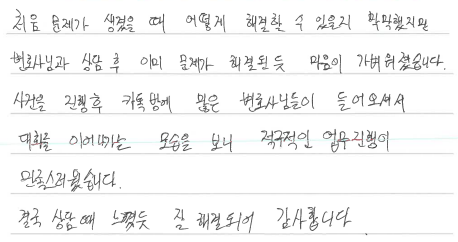 처음 문제가 생겼을 때 어떻게 해결할 수 있을지 막막했지만
변호사님과 상담 후 이미 문제가 해결된 듯 마음이 가벼워졌습니다.
사건을 진행 후 카톡방에 많은 변호사님들이 들어오셔서
대화를 이어나가는 모습을 보니 적극적인 업무진행이
만족스러웠습니다.
결국 상담 때 느꼈듯 잘 해결되어 감사합니다